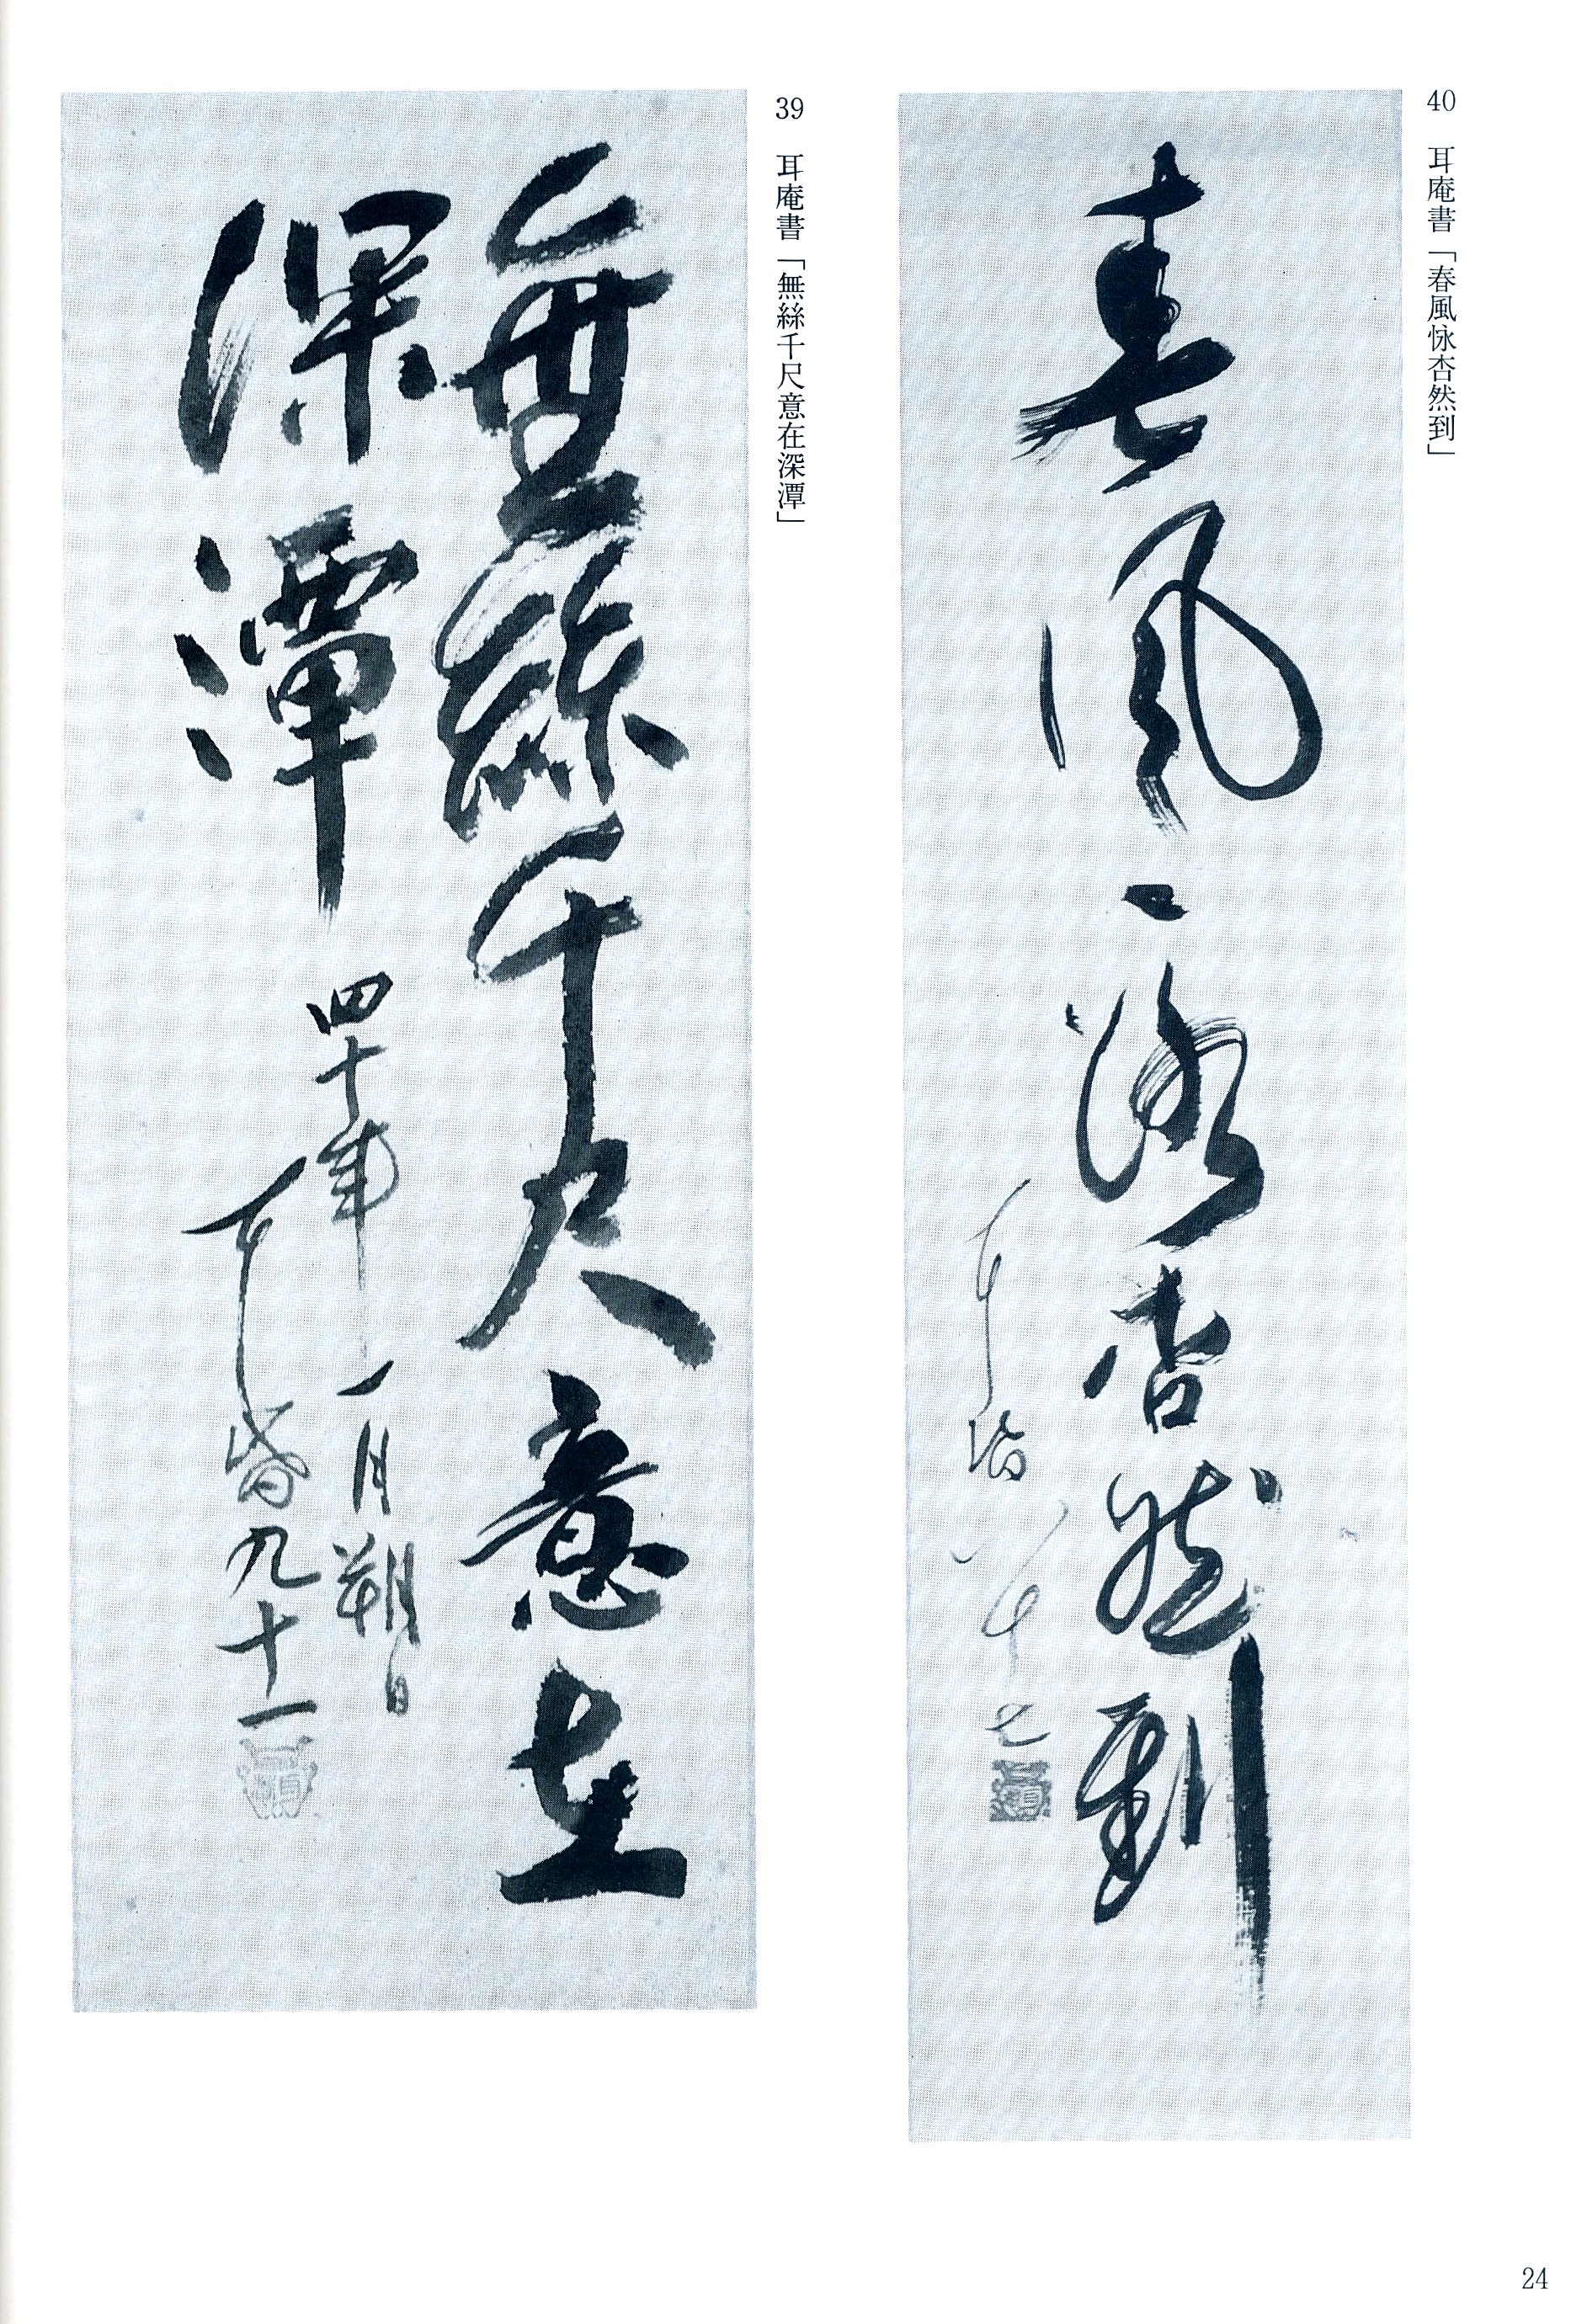 40 耳庵書「春風怺杏然到」
春風杏然到
耳庵八十七
39 耳庵書「無絲千尺意在深潭」
無絲千尺意在
深潭 四十年一月朔日
耳庵九十一
24